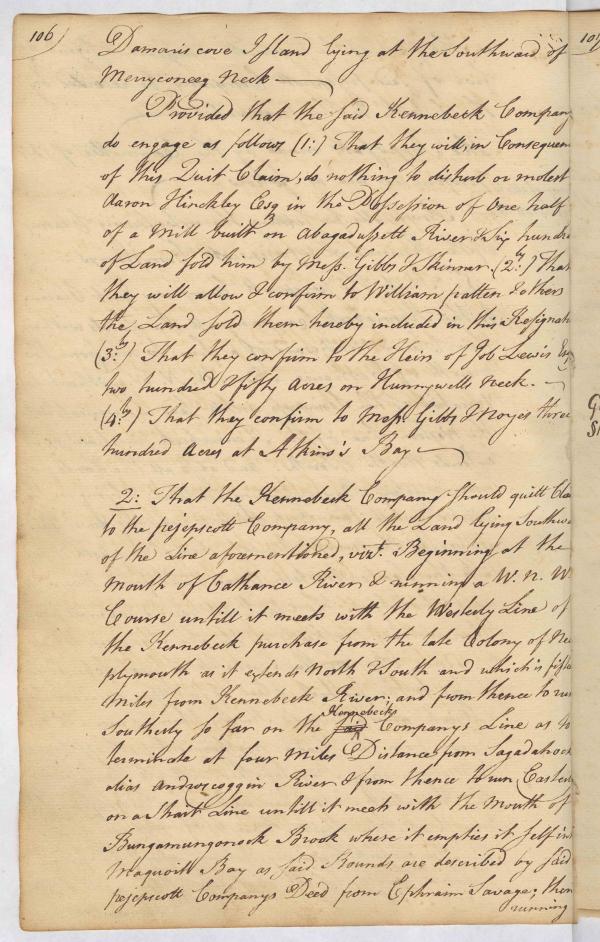 106
Damaris cove Island lying at the Southward of
Merryconeeg Neck
Provided that the said Kennebeck Company
do engage as follows (1:) That they will, in Consequen
of this Quit Claim, do nothing to disturb or molest
Aaron Hinckley Esq in the Possession of One half
of a Mill built on Abagadussett River & Six hundr
of Land sold him by Mess. Gibbs & Skinner. (2.ly) That
they will allow & confirm to William patten & others
the Land sold them hereby included in this Resignati
(3.ly) That they confirm to the Heirs of Job Lewis Esq
two hundred & fifty Acres on Hunnywells Neck.
(4.ly) That they confirm to Mess. Gibbs & Noyes three
hundred Acres at Atkins's Bay
2: That the Kennebeck Company Should quitt Cla
to the pejepscott Company, all the Land lying Southw
of the Line aforementioned, vizt. Beginning at the
Mouth of Cathance River & running a W. N. W
Course untill it meets with the Westerly Line of
the Kennebeck purchase from the late Colony of Ne
plymouth as it extends North & South and which is fifte
Miles from Kennebeck River; and from thence to run
Southerly so far on the said Kennebecks Companys Line as to
terminate at four Miles Distance from Sagadahock
alias Androscoggin River & from thence to run Easterly
on a Strait Line untill it meets with the Mouth of
Bungamungonock Brook where it empties it self in
Maquoit Bay as said Bounds are described by said
pejepscott Companys Deed from Ephraim Savage; then
running